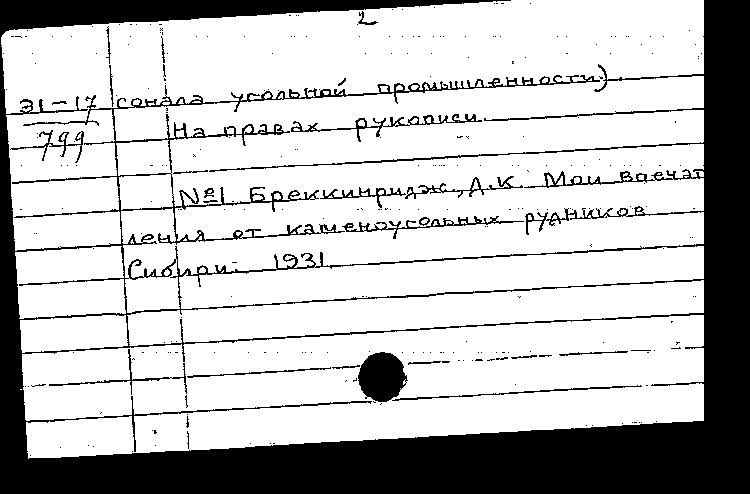 2
31-17 сонала угольной промышленности).
799 На правах рукописи.
№1 Бреккинридж, Д.К. Мои впечат
ления от каменоугольных рудников
Сибири. 1931.